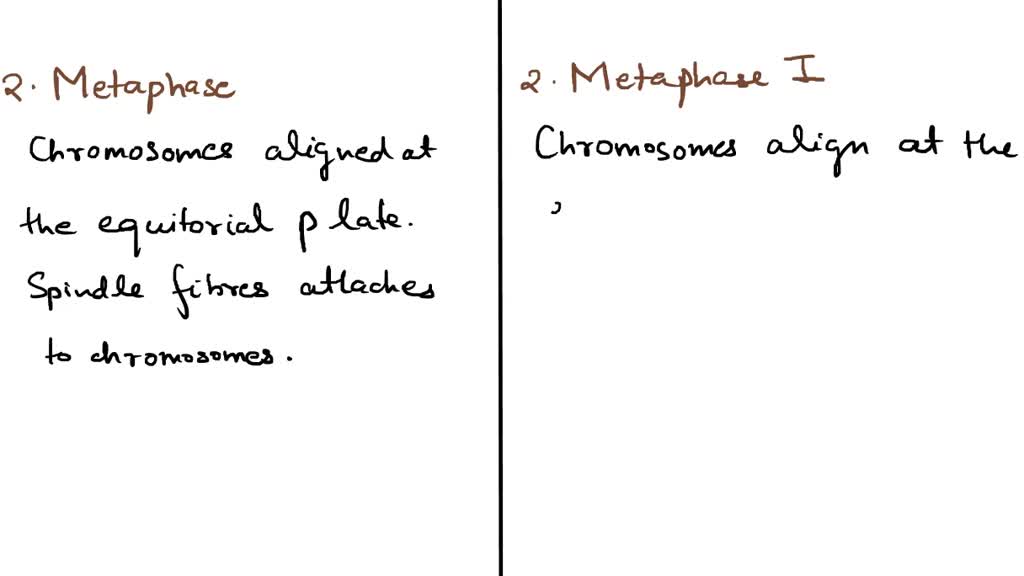 2. Metaphase
Chromosomes aligned at
the equitorial plate.
Spindle fibres attaches
to chromosomes.
2. Metaphase I
Chromosomes align at the